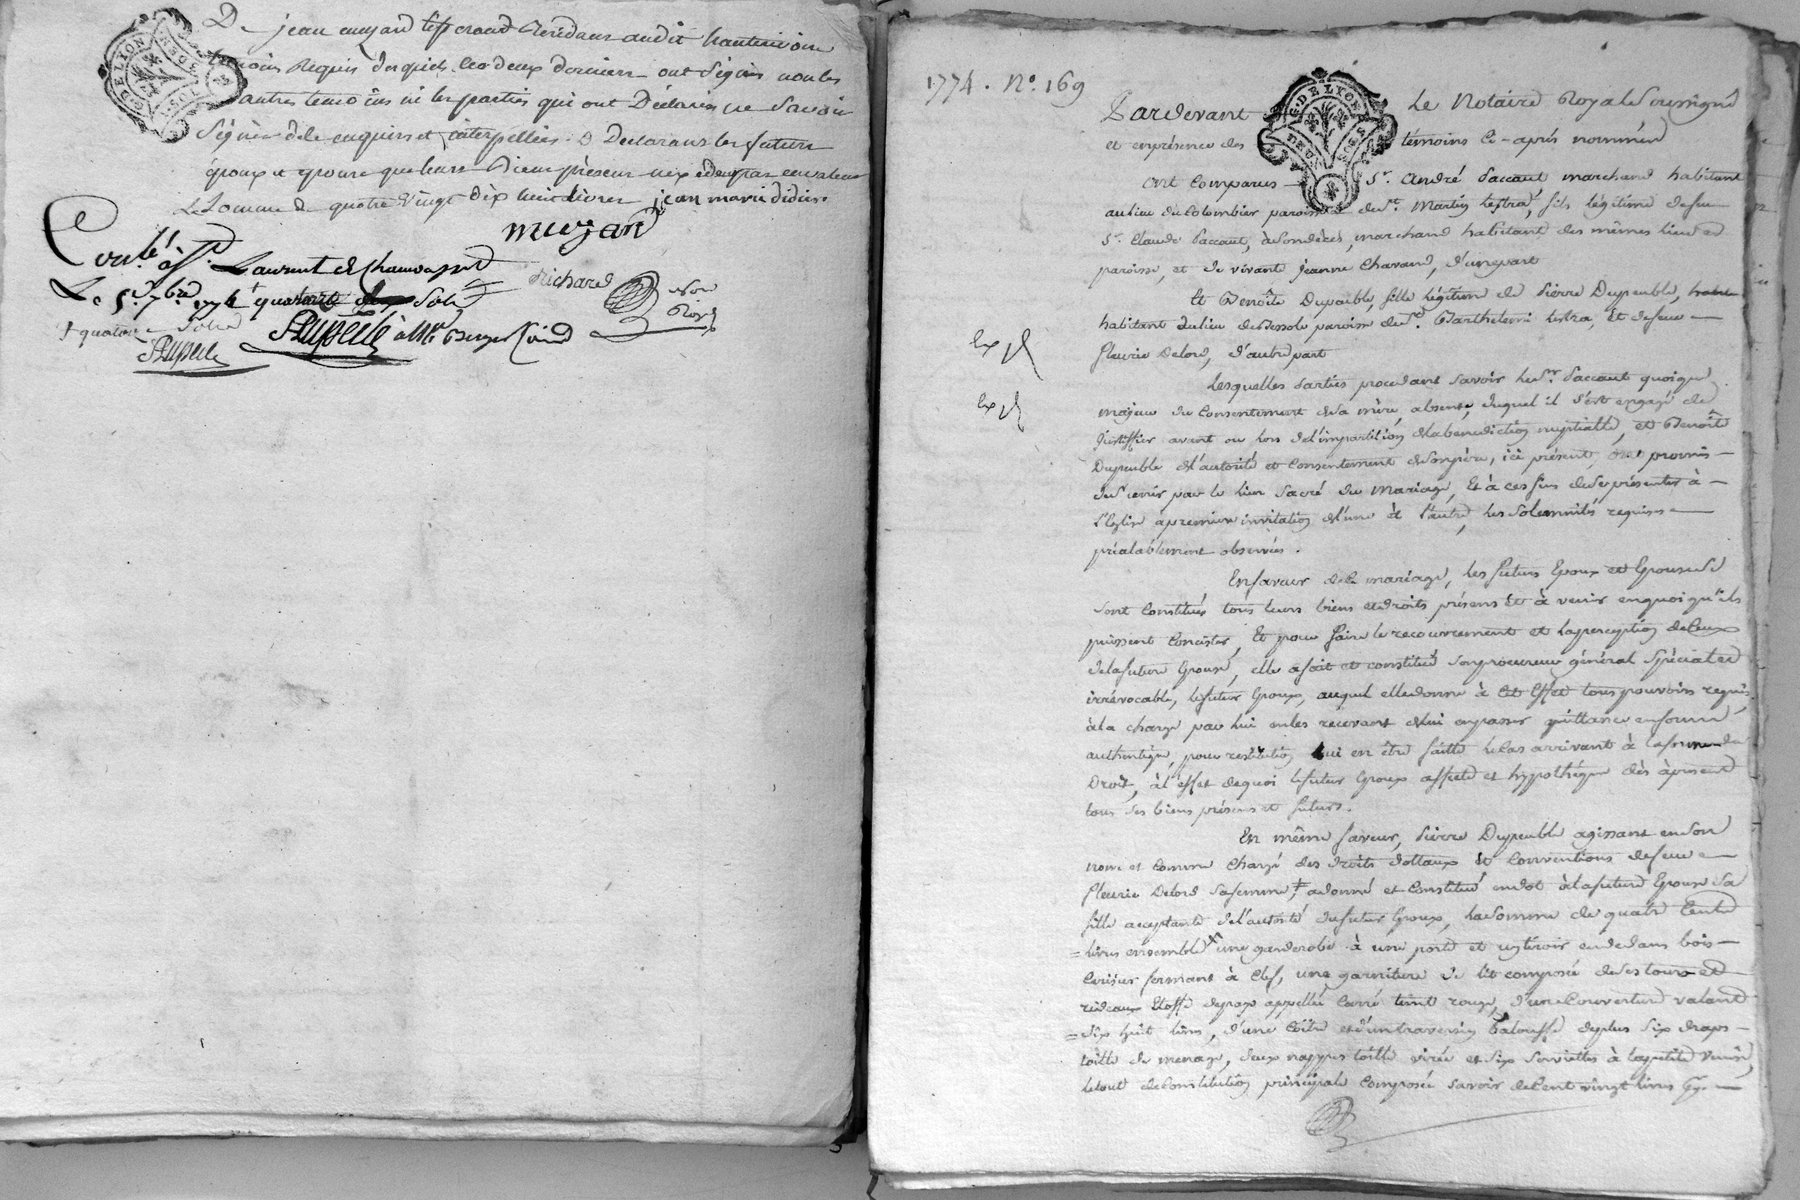 De jean muzard tisserand Residans audit
temoins Requis desquels les deux derniers ont Signés non les
autres temoins ni les parties qui ont Déclarés ne Savoir
Signer de ce enquis et interpellés. D Declarans les futurs
époux et épouse que leurs Biens présens n'excédent pas en valeur
La Somme de quatre vingt dix huit livres jean marie didier
muzard
Richard
Con.lé à
Laurent de Chamousset
Le 5. 7bre 1774 quatorze Sols
+ quatorze Sols
Not. Roy.
G. DE LYON
DEUX SOLS
1774. N.o 169
Pardevant Le Notaire Royal Soussigné
et en présence des témoins Ci-après nommés
G. DE LYON
DEUX SOLS
ont Comparus Sr. André Paccaut marchand habitant
au lieu du Colombier paroisse de St. Martin Lestra, fils légitime de feu
Sr. Claude Paccaut, à son décès, marchand habitant des mêmes lieu et
paroisse, et de vivant jeanne Chavand, d'une part
Et Benoîte Dupeuble, fille légitime de Pierre Dupeuble,
habitant au lieu de paroisse de St. Barthelemi lestra, Et de feue
fleurie Delord, d'autre part
Exp
Exp
Lesquelles Parties procedans Savoir le Sr. Paccaut quoique
majeur du Consentement de sa mère, absente, duquel il s'est engagé de
justiffier avant ou lors de l'impartition de la benediction nuptialle, et Benoîte
Dupeuble de l'autorité et Consentement de son père, ici présent, ont promis
de s'unir par le lien Sacré du Mariage, Et à ces fins de se présenter à
l'Eglise a premiere invitation de l'une à l'autre, les Solemnités requises
préalablement observées.
En faveur de ce mariage, les futurs Epoux et Epouse se
sont Constitués tous leurs biens et droits présens Et à venir en quoi qu'ils
puissent Consister, Et pour faire le recouvrement et la perception de Ceux
de la future Epouse, elle a fait et constitué son procureur général Spécial et
irrévocable, le futur Epoux, auquel elle donne à Cet Effet tous pouvoirs requis,
à la charge par lui en les recevant de lui en passer quittance en forme
authentique, pour restitution lui en être faitte le Cas arrivant à la forme du
Droit, à l'effet de quoi le futur Epoux affecte et hypothéque dès à present
tous ses biens présens et futurs.
En même faveur, Pierre Dupeuble agissant en son
nom et Comme Chargé des droits dottaux Et Conventions de feue
fleurie Delord sa femme, a donné et Constitué en dot à la future Epouse Sa
fille acceptante de l'autorité du futur Epoux, la Somme de quatre Cents
livres ensemble une garderobe à une porte et un tiroir en dedans bois
Cerisier fermant à Clef, une garniture de lit composée de ses tours et
rideaux Etoffe du pays appellée Carré teint rouge, d'une Couverture valant
dix huit livres, d'une Coitre et d'un traversin Balouffe, de plus six draps
toille de menage, deux nappes toille et Six Serviettes à la petite Venise,
le tout de Constitution principale Composée Savoir de Cent vingt livres